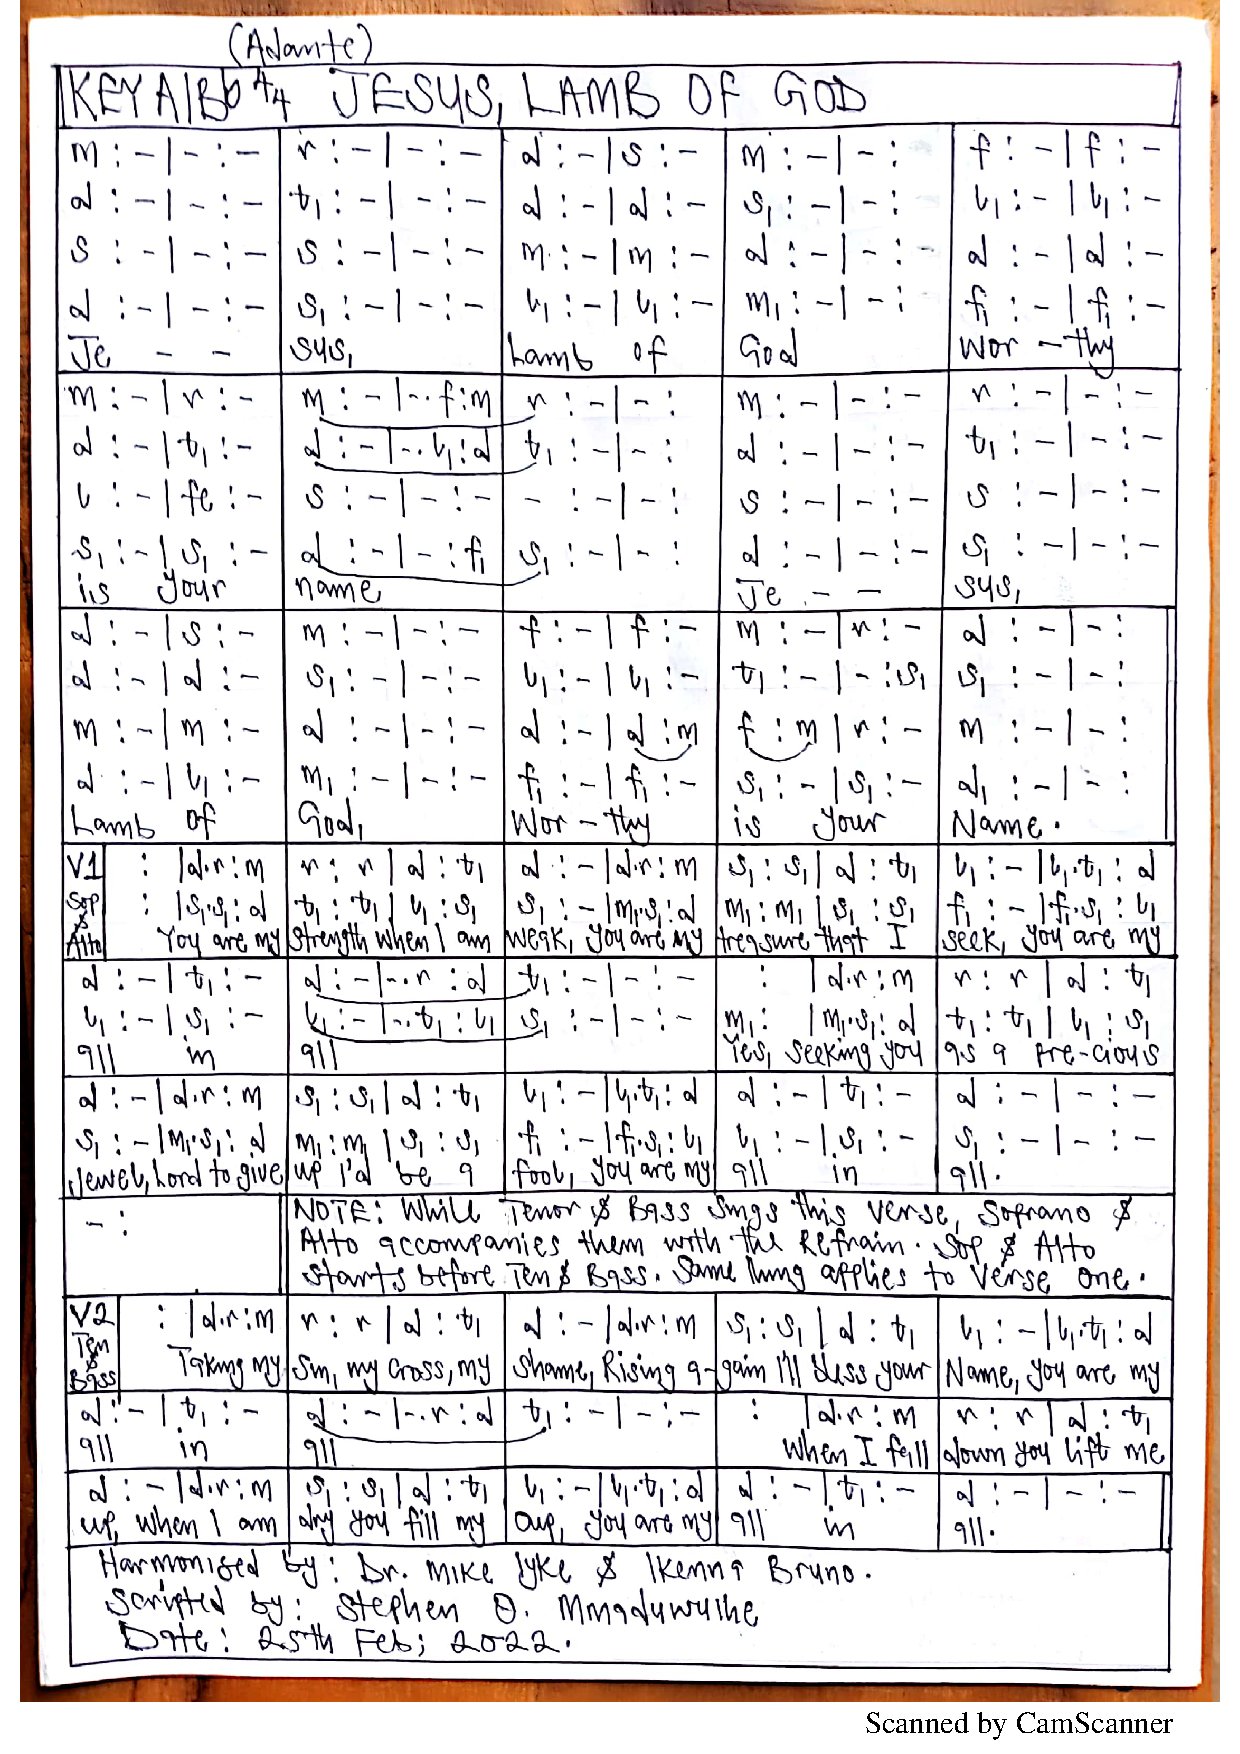 (Adante)
KEY A/Bb 4/4 JESUS, LAMB OF GOD
m : - | - : - r : - | - : - d : - | s : - m : - | - : f : - | f : -
d : - | - : - t₁ : - | - : - d : - | d : - s₁ : - | - : l₁ : - | l₁ : -
s : - | - : - s : - | - : - m : - | m : - d : - | - : d : - | d : -
d : - | - : - s₁ : - | - : - l₁ : - | l₁ : - m₁ : - | - : f₁ : - | f₁ : -
Je - - sus, Lamb of God Wor - thy
m : - | r : - m : - | - . f : m r : - | - : m : - | - : - r : - | - : -
d : - | t₁ : - d : - | - . l₁ : d t₁ : - | - : d : - | - : - t₁ : - | - : -
l : - | fe : - s : - | - : - - : - | - : s : - | - : - s : - | - : -
s₁ : - | s₁ : - d : - | - : f₁ s₁ : - | - : d : - | - : - s₁ : - | - : -
is your name Je - - sus,
d : - | s : - m : - | - : - f : - | f : - m : - | r : - d : - | - :
d : - | d : - s₁ : - | - : - l₁ : - | l₁ : - t₁ : - | - : s₁ s₁ : - | - :
m : - | m : - d : - | - : - d : - | d : m f : m | r : - m : - | - :
d : - | l₁ : - m₁ : - | - : - f₁ : - | f₁ : - s₁ : - | s₁ : - d₁ : - | - :
Lamb of God, Wor - thy is your Name.
V1 : | d.r : m r : r | d : t₁ d : - | d.r : m s₁ : s₁ | d : t₁ l₁ : - | l₁.t₁ : d
Sop & Alto : | s₁.s₁ : d t₁ : t₁ | l₁ : s₁ s₁ : - | m₁.s₁ : d m₁ : m₁ | s₁ : s₁ f₁ : - | f₁.s₁ : l₁
You are my strength when I am weak, you are my treasure that I seek, you are my
d : - | t₁ : - d : - | - . r : d t₁ : - | - : - : | d.r : m r : r | d : t₁
l₁ : - | s₁ : - l₁ : - | - . t₁ : l₁ s₁ : - | - : - m₁ : | m₁.s₁ : d t₁ : t₁ | l₁ : s₁
all in all Yes, seeking you as a pre-cious
d : - | d.r : m s₁ : s₁ | d : t₁ l₁ : - | l₁.t₁ : d d : - | t₁ : - d : - | - : -
s₁ : - | m₁.s₁ : d m₁ : m₁ | s₁ : s₁ f₁ : - | f₁.s₁ : l₁ l₁ : - | s₁ : - s₁ : - | - : -
Jewel, Lord to give up I'd be a fool, you are my all in all.
- : NOTE: While Tenor & Bass Sings this verse, Soprano &
Alto accompanies them with the Refrain. Sop & Alto
starts before Ten & Bass. Same thing applies to Verse one.
V2 : | d.r : m r : r | d : t₁ d : - | d.r : m s₁ : s₁ | d : t₁ l₁ : - | l₁.t₁ : d
Ten & Bass Taking my Sin, my Cross, my Shame, Rising a-gain I'll bless your Name, you are my
d : - | t₁ : - d : - | - . r : d t₁ : - | - : - : | d.r : m r : r | d : t₁
all in all When I fall down you lift me
d : - | d.r : m s₁ : s₁ | d : t₁ l₁ : - | l₁.t₁ : d d : - | t₁ : - d : - | - : -
up, when I am dry you fill my Cup, you are my all in all.
Harmonised by: Dr. Mike Iyke & Ikenna Bruno.
Scripted by: Stephen O. Mmaduwuihe
Date: 25th Feb; 2022.
Scanned by CamScanner